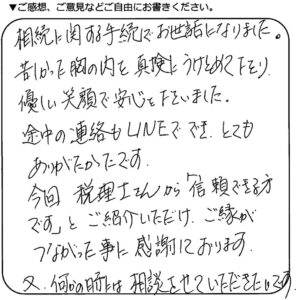 ▼ご感想、ご意見などご自由にお書きください。
相続に関する手続でお世話になりました。
苦しかった胸の内を真険にうけとめて下さり
優しい笑顔で安心を下さいました。
途中の連絡もLINEででき とても
ありがたかたです。
今回 税理士さんから「信頼できる方
です」とご紹介いただけ、ご縁が
つながった事に感謝しております。
又、何かの時には相談させていただきたいです